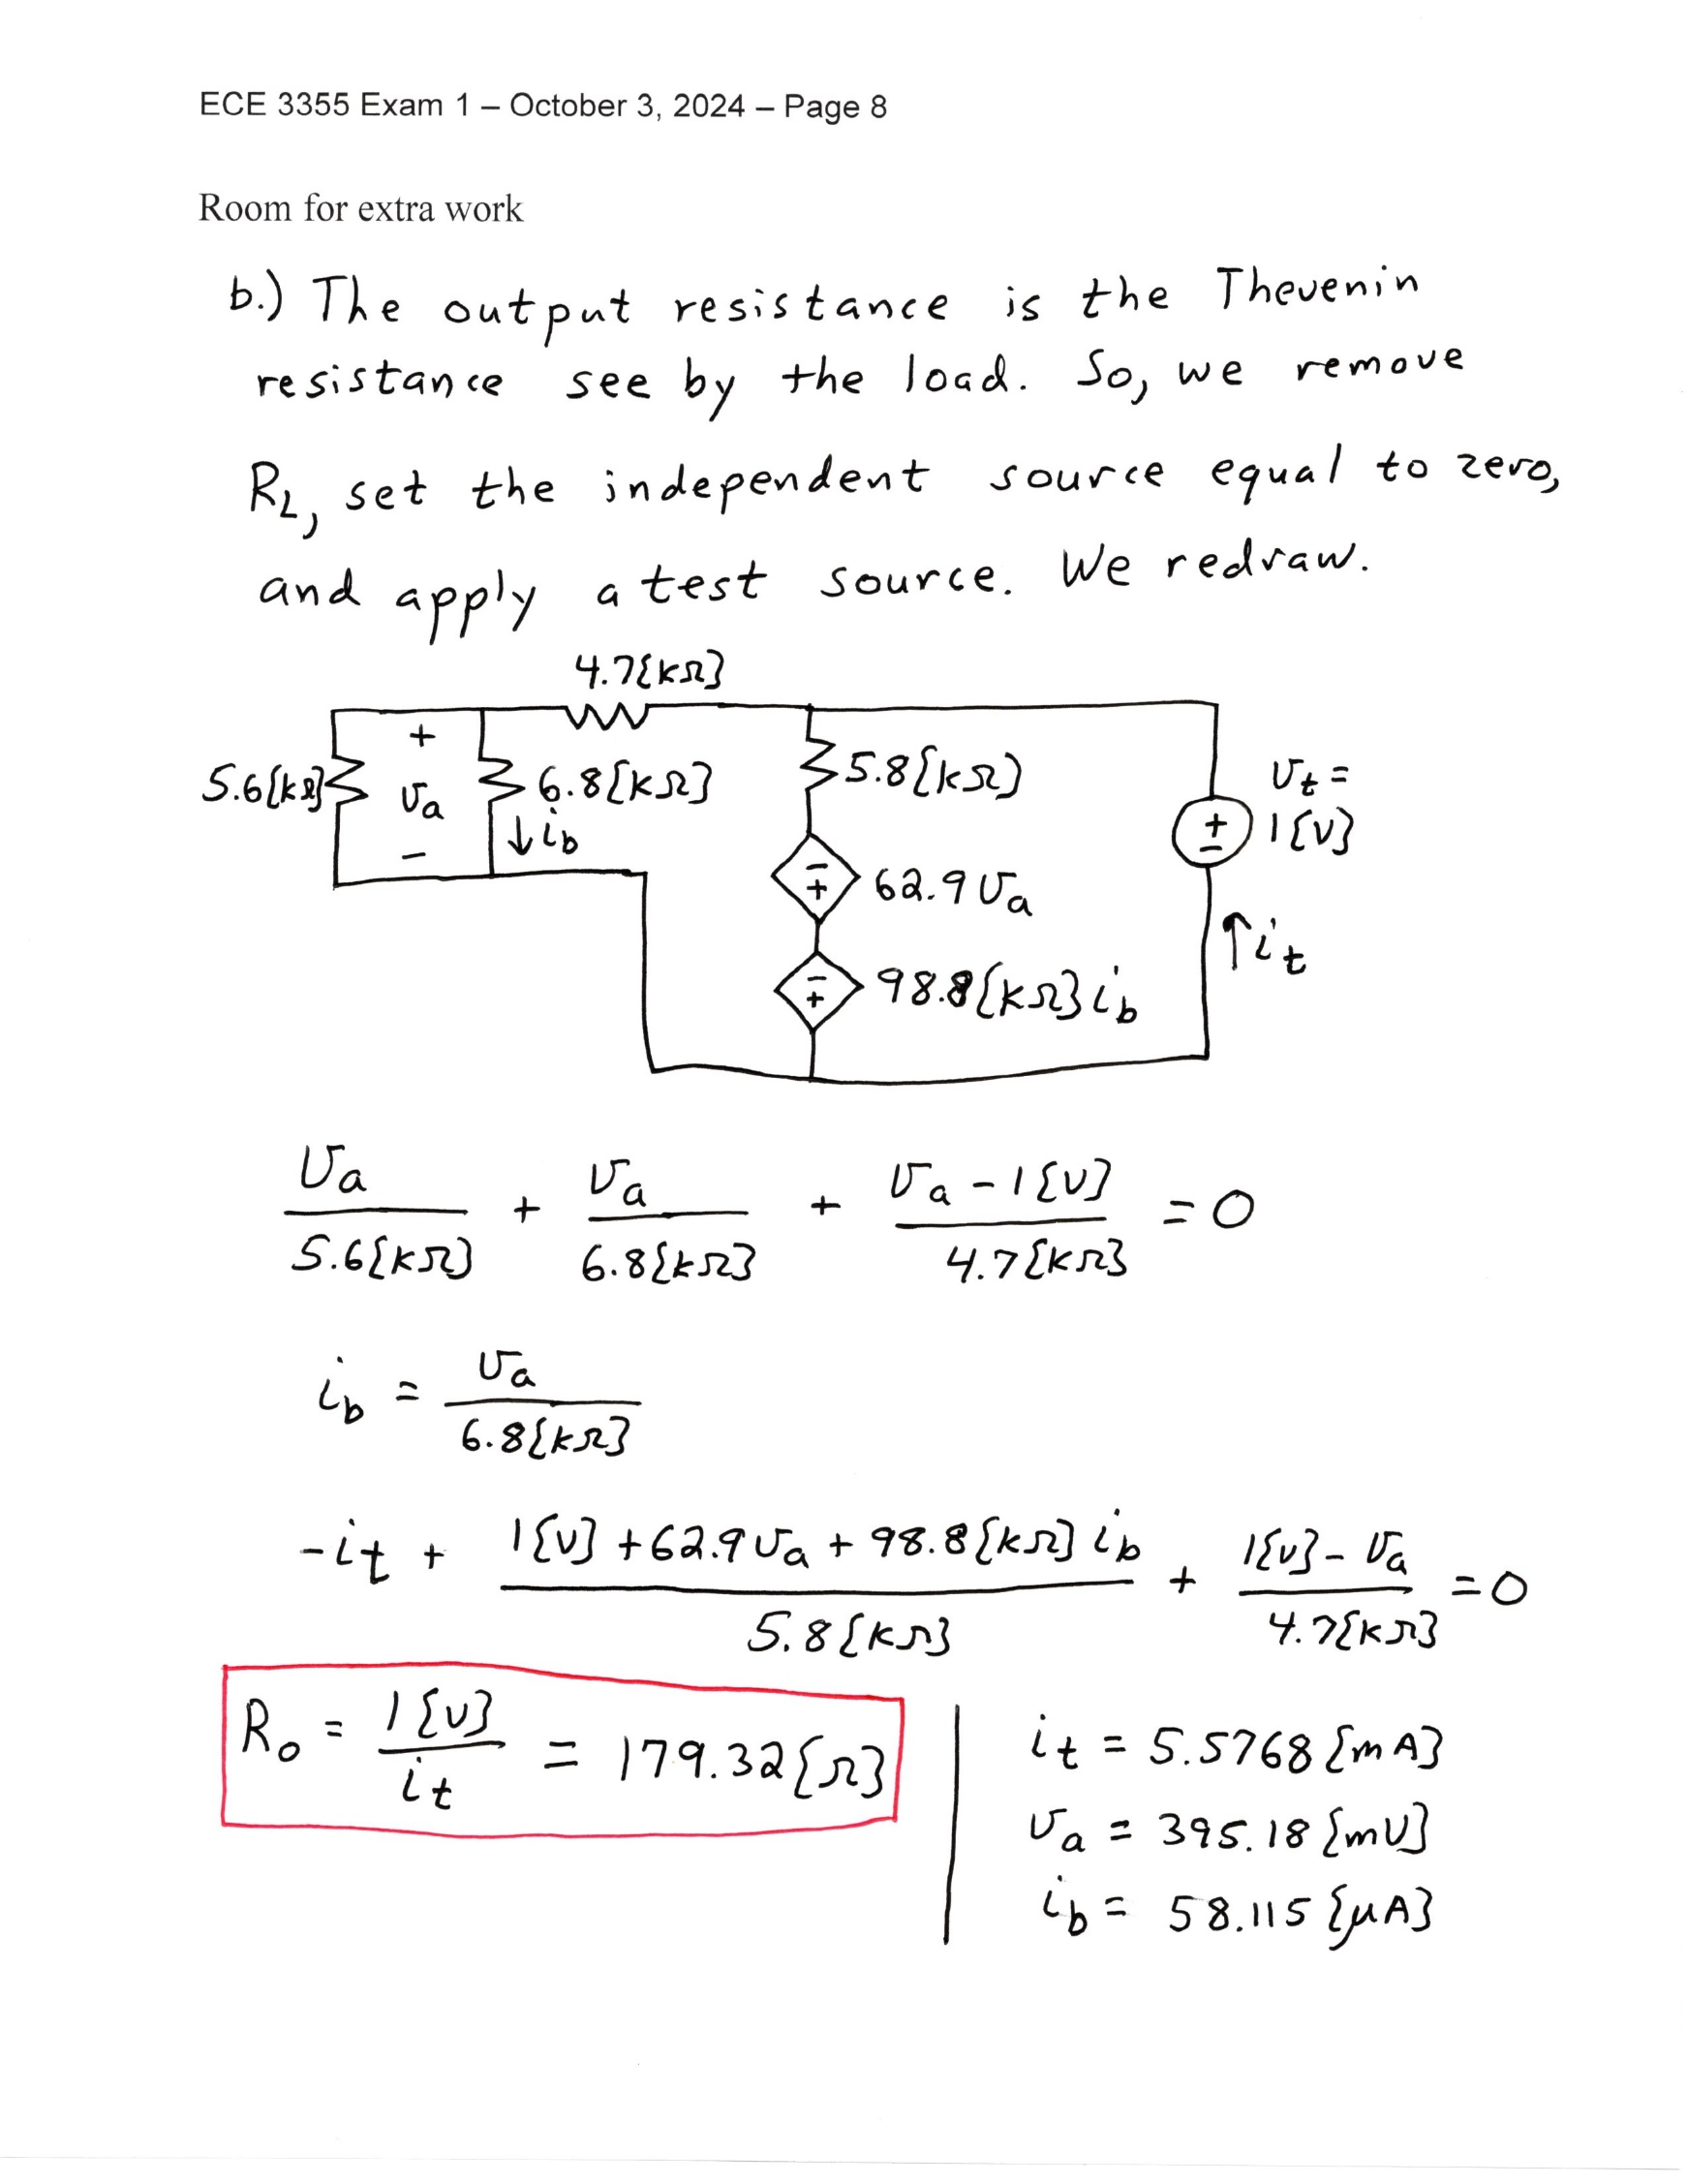 ECE 3355 Exam 1 – October 3, 2024 – Page 8
Room for extra work
b.) The output resistance is the Thevenin
resistance see by the load. So, we remove
RL, set the independent source equal to zero,
and apply a test source. We redraw.
4.7{kΩ}
5.6{kΩ}
+
va
−
6.8{kΩ}
↓ib
5.8{kΩ}
vt =
1{V}
+
−
−
+
62.9va
↑it
−
+
98.8{kΩ}ib
va/5.6{kΩ} + va/6.8{kΩ} + (va − 1{V})/4.7{kΩ} = 0
ib = va/6.8{kΩ}
−it + (1{V} + 62.9va + 98.8{kΩ}ib)/5.8{kΩ} + (1{V} − va)/4.7{kΩ} = 0
Ro = 1{V}/it = 179.32{Ω}
it = 5.5768{mA}
va = 395.18{mV}
ib = 58.115{μA}